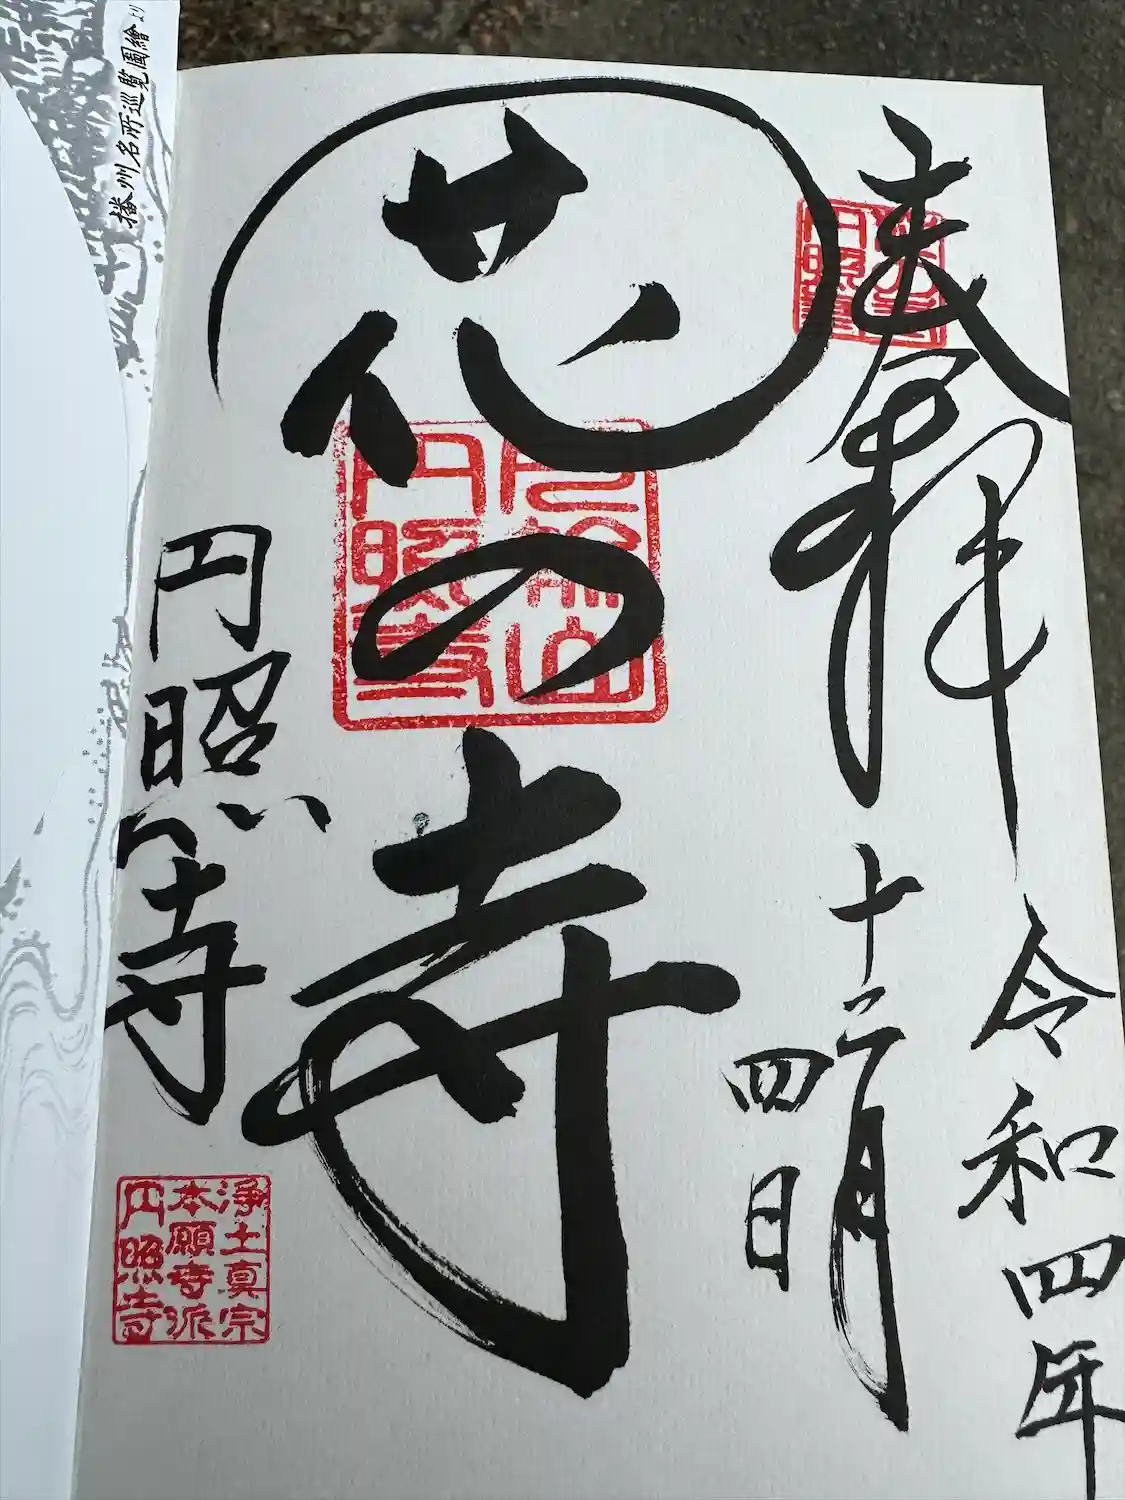 奉拝
令和四年
十二月
四日
花の寺
円照寺
浄土真宗
本願寺派
円照寺
播州名所巡覧圖繪より